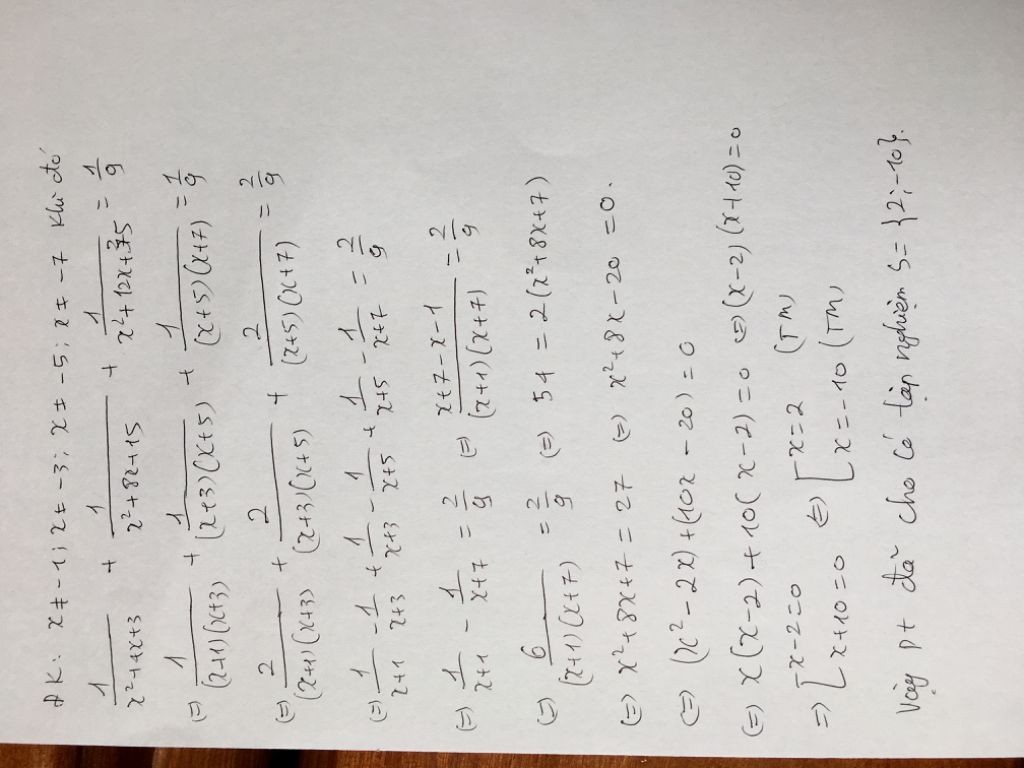 ĐK: x ≠ -1; x ≠ -3; x ≠ -5; x ≠ -7 Khi đó
1/(x²+4x+3) + 1/(x²+8x+15) + 1/(x²+12x+35) = 1/9
(=) 1/((x+1)(x+3)) + 1/((x+3)(x+5)) + 1/((x+5)(x+7)) = 1/9
(=) 2/((x+1)(x+3)) + 2/((x+3)(x+5)) + 2/((x+5)(x+7)) = 2/9
(=) 1/(x+1) - 1/(x+3) + 1/(x+3) - 1/(x+5) + 1/(x+5) - 1/(x+7) = 2/9
(=) 1/(x+1) - 1/(x+7) = 2/9 (=) (x+7-x-1)/((x+1)(x+7)) = 2/9
(=) 6/((x+1)(x+7)) = 2/9 (=) 54 = 2(x²+8x+7)
(=) x²+8x+7 = 27 (=) x²+8x-20 = 0.
(=) (x²-2x)+(10x-20) = 0
(=) x(x-2)+10(x-2) = 0 (=) (x-2)(x+10) = 0
=) [x-2=0 (=) [x=2 (TM)
[x+10=0 [x=-10 (TM)
Vậy pt đã cho có tập nghiệm S= {2;-10}.